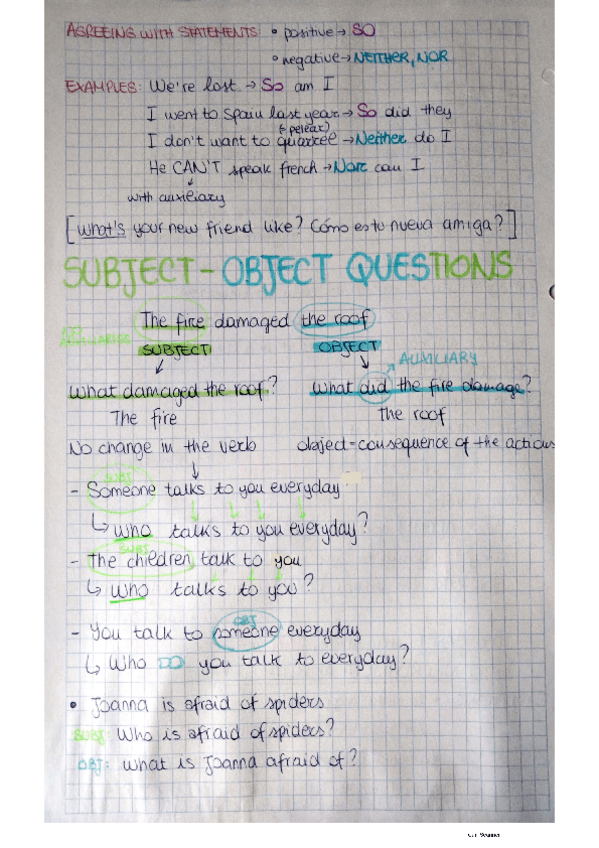 AGREEING WITH STATEMENTS • positive → SO
• negative → NEITHER, NOR
EXAMPLES: We're lost. → So am I
I went to Spain last year → So did they
(pelear)
I don't want to quarrel → Neither do I
He CAN'T speak french → Nor can I
with auxiliary
[What's your new friend like? Cómo es tu nueva amiga?]
SUBJECT - OBJECT QUESTIONS
The fire damaged the roof
SUBJECT OBJECT
AUXILIARY
What damaged the roof? What did the fire damage?
The fire the roof
No change in the verb object = consequence of the actions
SUBJ
- Someone talks to you everyday
↳ Who talks to you everyday?
SUBJ
- The children talk to you
↳ Who talks to you?
OBJ
- You talk to someone everyday
↳ Who DO you talk to everyday?
• Joanna is afraid of spiders
SUBJ: Who is afraid of spiders?
OBJ: What is Joanna afraid of?